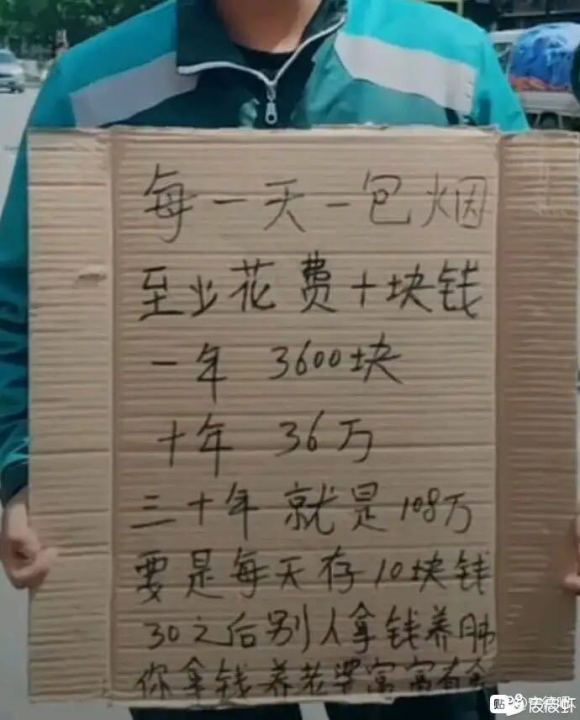 每一天一包烟
至少花费十块钱
一年 3600块
十年 36万
三十年 就是 108万
要是每天存10块钱
30之后别人拿钱养肺
你拿钱养老
贴